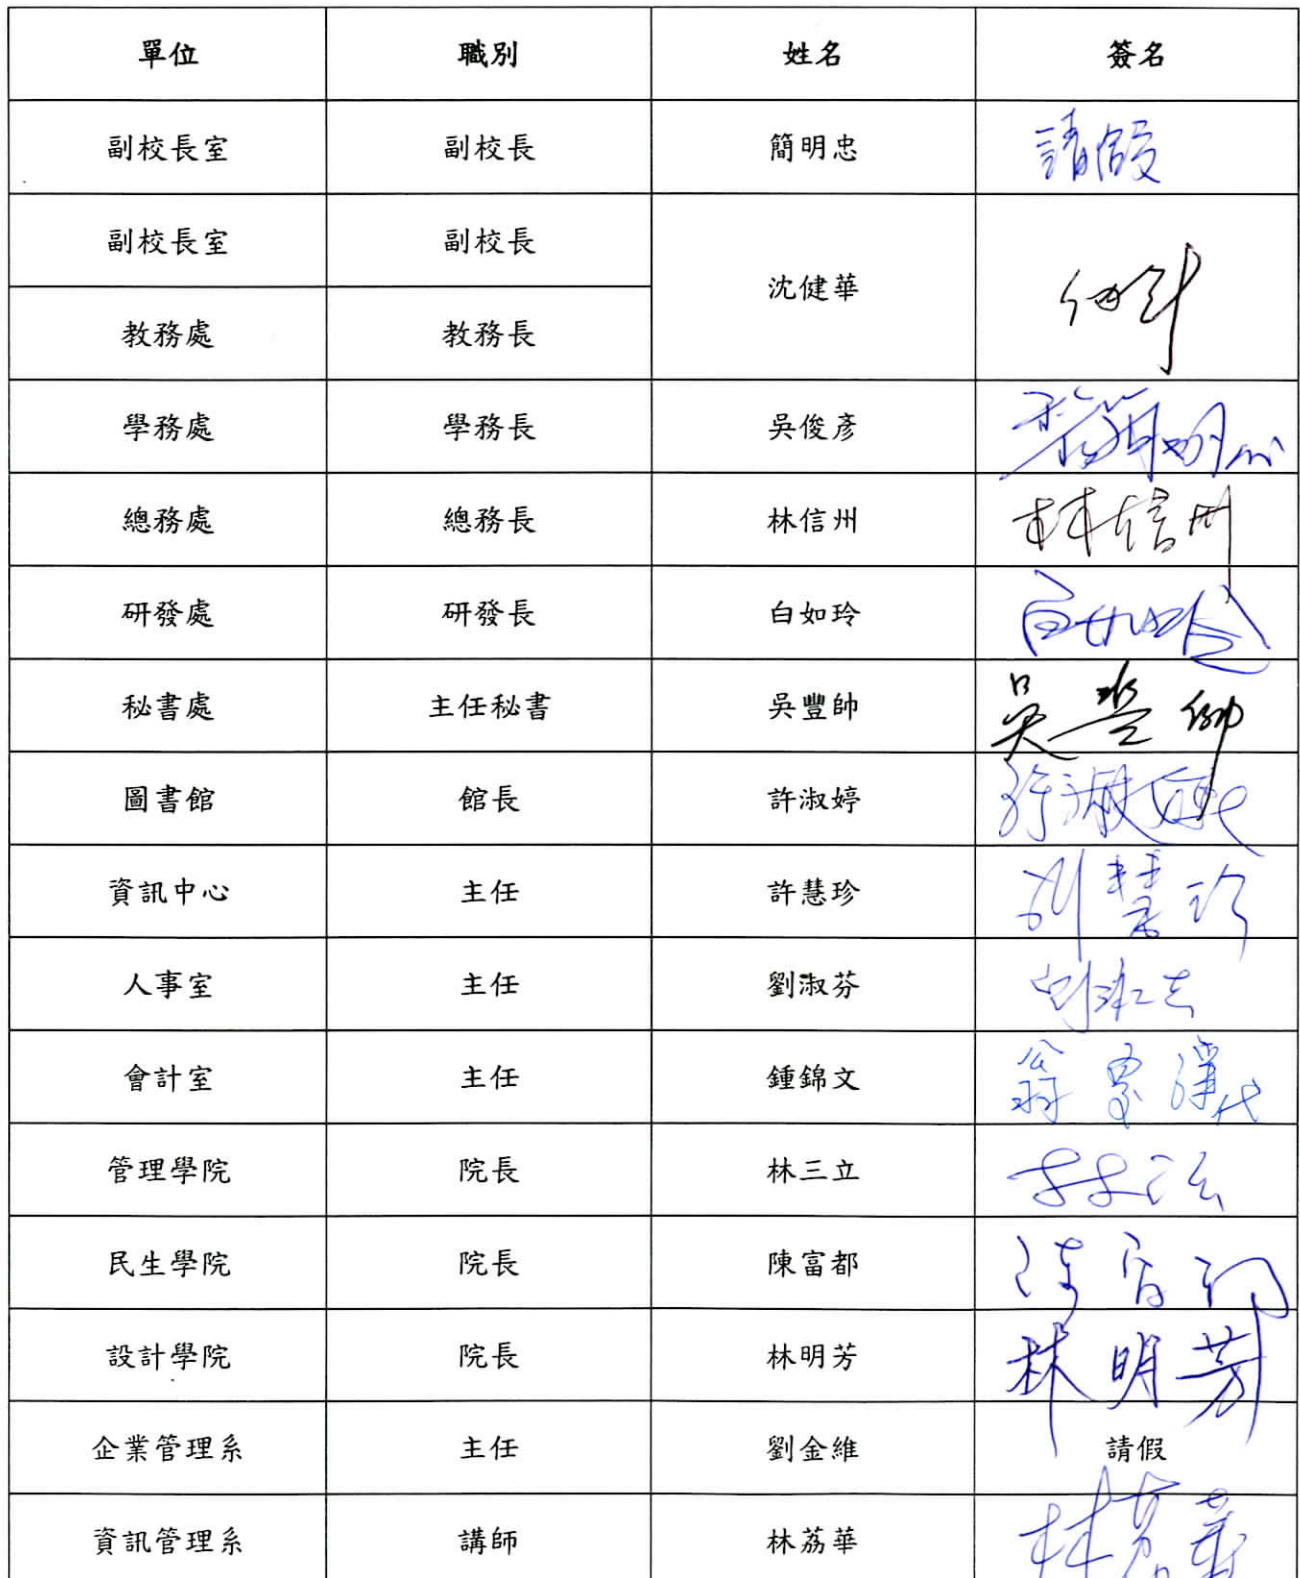 單位 職別 姓名 簽名
副校長室 副校長 簡明忠 請假
副校長室 副校長 沈健華
教務處 教務長
學務處 學務長 吳俊彥
總務處 總務長 林信州 林信州
研發處 研發長 白如玲 白如玲
秘書處 主任秘書 吳豐帥 吳豐帥
圖書館 館長 許淑婷 許淑婷
資訊中心 主任 許慧珍 慧珍
人事室 主任 劉淑芬 劉淑芬
會計室 主任 鍾錦文 代
管理學院 院長 林三立 林三立
民生學院 院長 陳富都 陳富都
設計學院 院長 林明芳 林明芳
企業管理系 主任 劉金維 請假
資訊管理系 講師 林荔華 林荔華